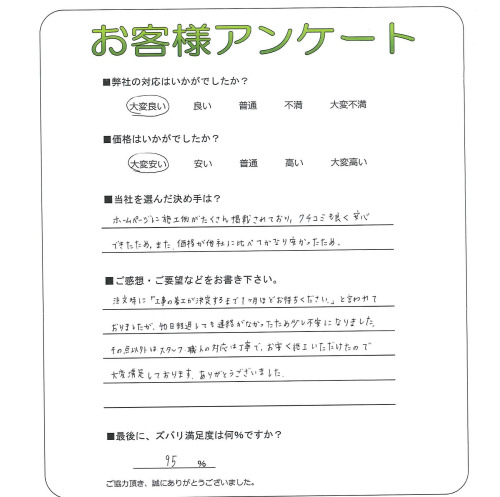 お客様アンケート
■弊社の対応はいかがでしたか？
大変良い 良い 普通 不満 大変不満
■価格はいかがでしたか？
大変安い 安い 普通 高い 大変高い
■当社を選んだ決め手は？
ホームページに施工例がたくさん掲載されており、クチコミも良く安心
できたため。また、価格が他社に比べてかなり安かったため。
■ご感想・ご要望などをお書き下さい。
注文時に「工事の着工が決定するまで1ヶ月ほどお待ちください。」と言われて
おりましたが、40日経過しても連絡がなかったため少し不安になりました。
その点以外はスタッフ・職人の対応は丁寧で、お安く施工いただけたので
大変満足しております。ありがとうございました。
■最後に、ズバリ満足度は何%ですか？
95 %
ご協力頂き、誠にありがとうございました。